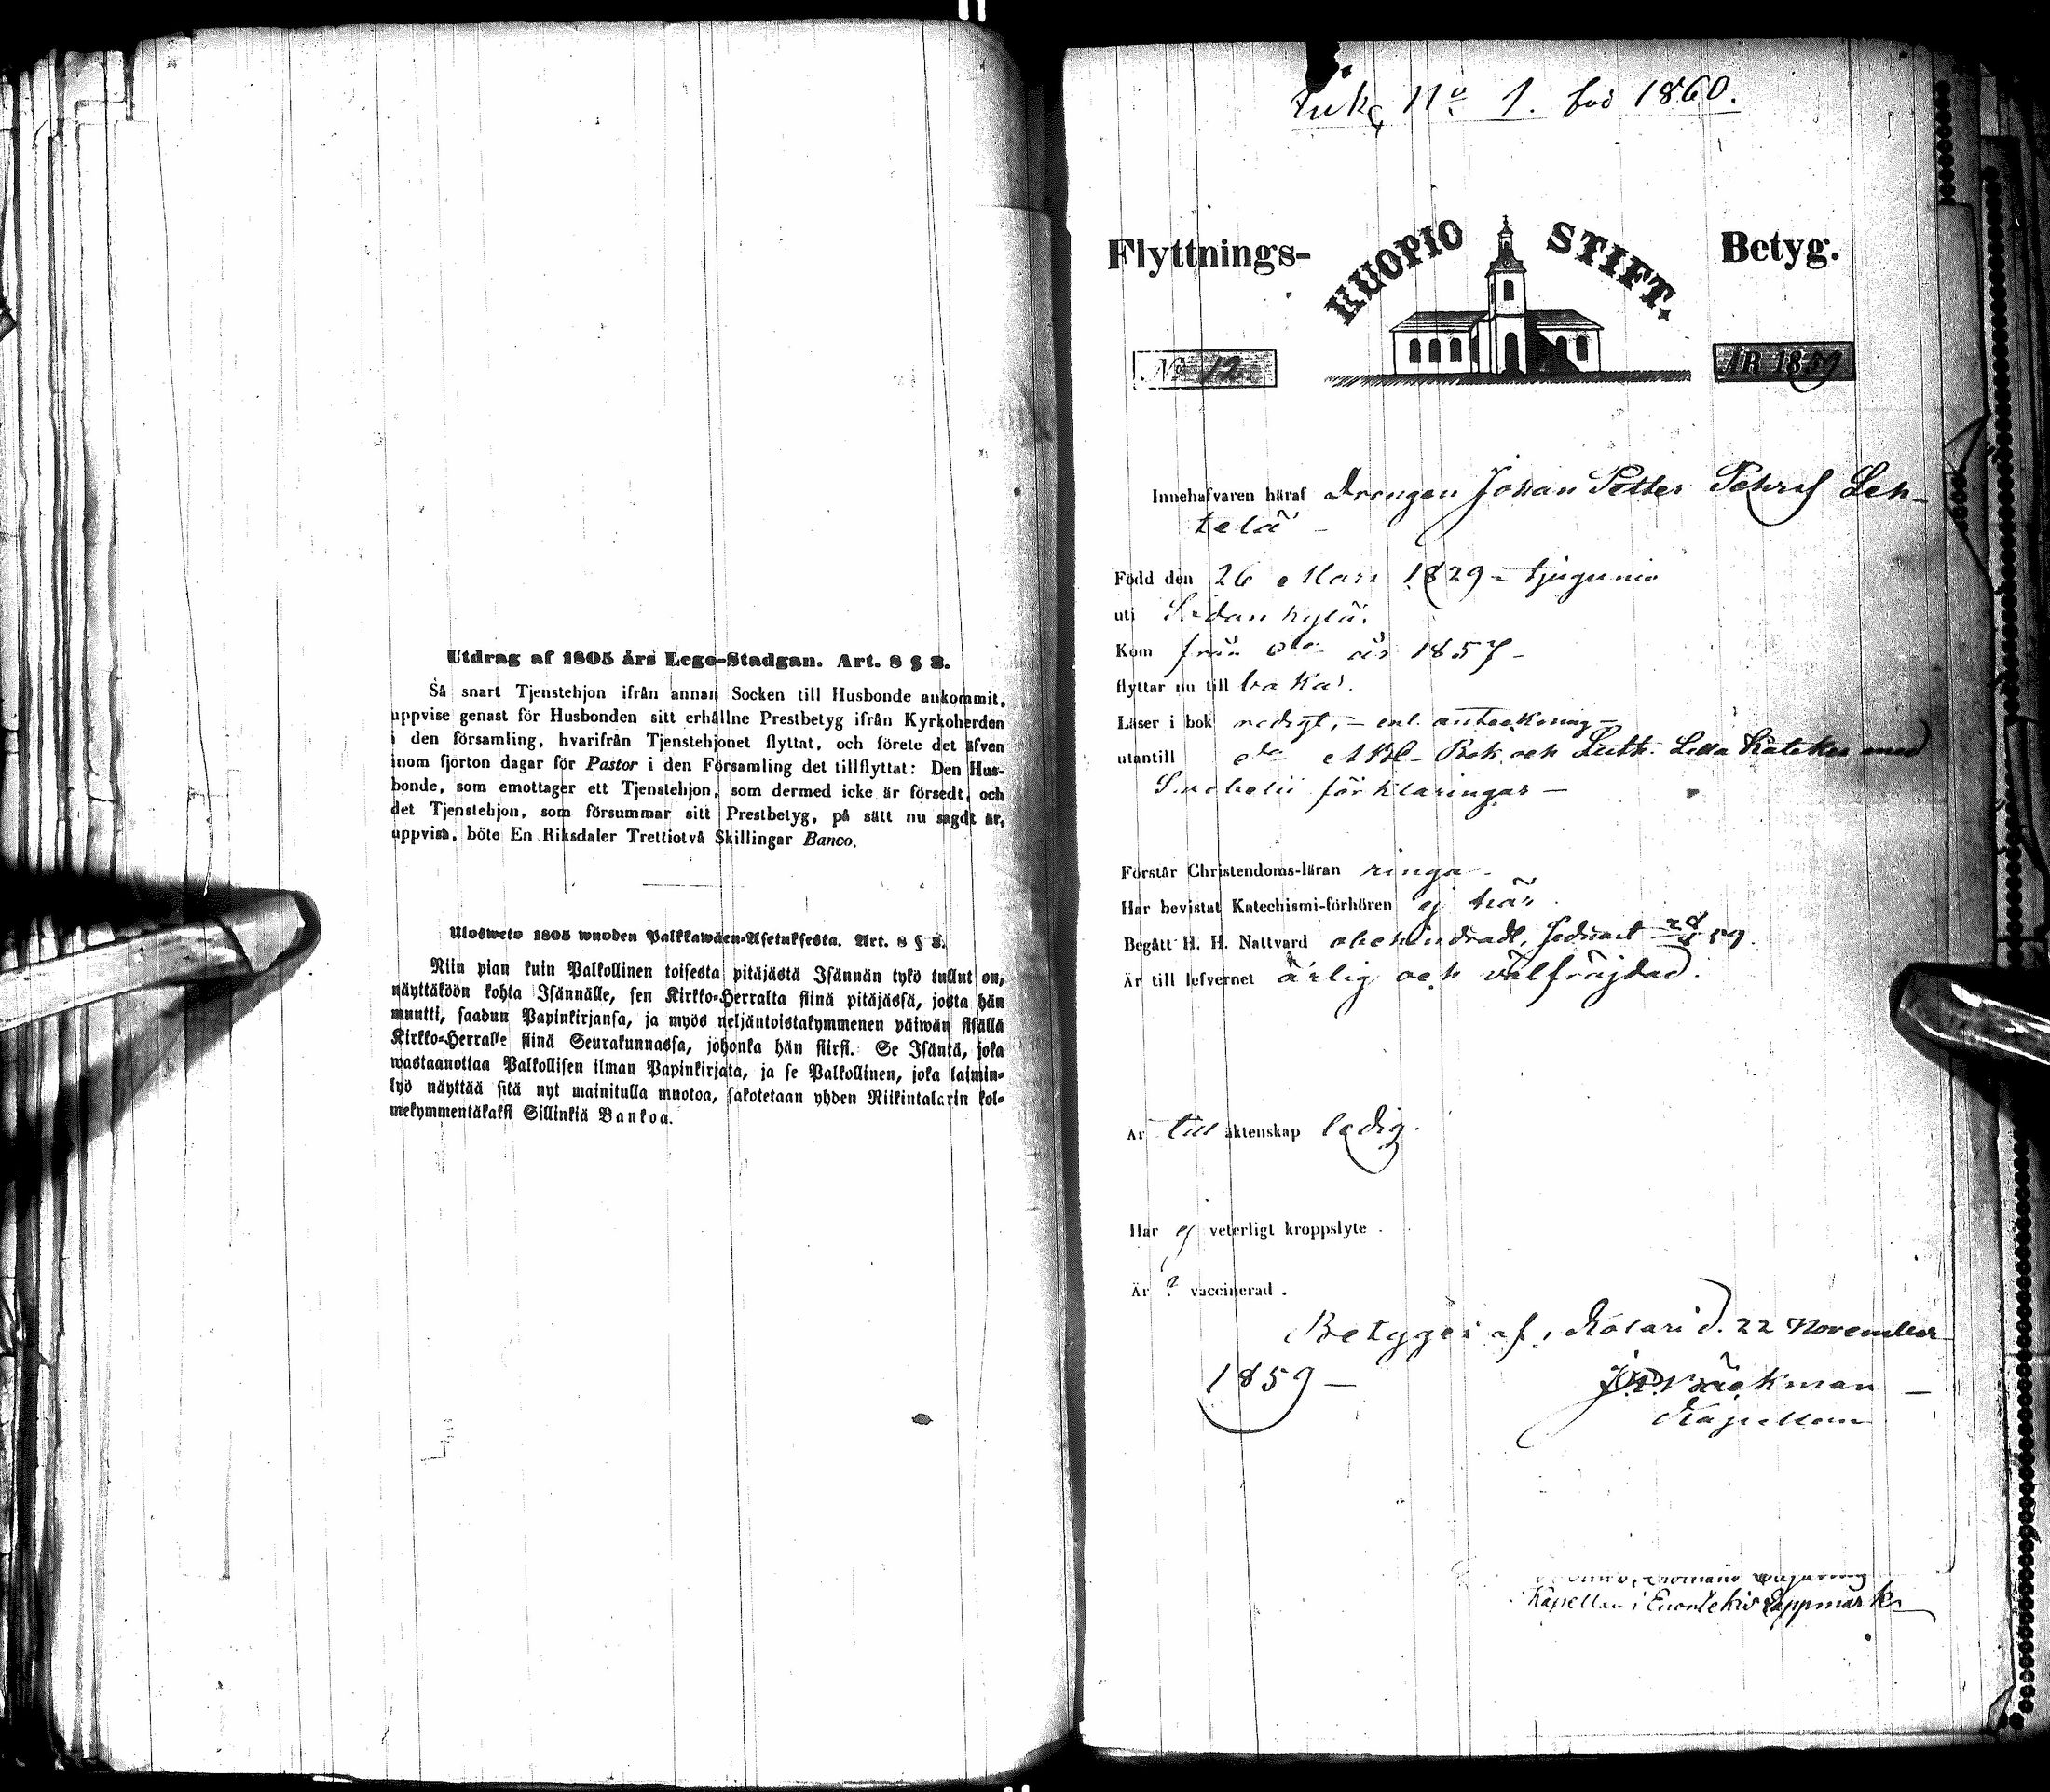 Utdrag af 1805 års Lego-Stadgan. Art. 8 § 3.
Så snart Tjenstehjon ifrån annan Socken till Husbonde ankommit,
uppvise genast för Husbonden sitt erhållne Prestbetyg ifrån Kyrkoherden
i den församling, hvarifrån Tjenstehjonet flyttat, och förete det äfven
inom fjorton dagar för Pastor i den Församling det tillflyttat: Den Hus-
bonde, som emottager ett Tjenstehjon, som dermed icke är försedt, och
det Tjenstehjon, som försummar sitt Prestbetyg, på sätt nu sagdt är,
uppvisa, böte En Riksdaler Trettiotvå Skillingar Banco.
Ulosweto 1805 wuoden Palkkawäen-Asetuksesta. Art. 8 § 3.
Niin pian kuin Palkollinen toisesta pitäjästä Isännän tykö tullut on,
näyttäköön kohta Isännälle, sen Kirkko-Herralta siinä pitäjässä, josta hän
muutti, saadun Papinkirjansa, ja myös neljäntoistakymmenen päiwän sisällä
Kirkko-Herralle siinä Seurakunnassa, johonka hän siirsi. Se Isäntä, joka
wastaanottaa Palkollisen ilman Papinkirjata, ja se Palkollinen, joka laimin-
lyö näyttää sitä nyt mainitulla muotoa, sakotetaan yhden Riikintalarin kol-
mekymmentäkaksi Sillinkiä Bankoa.
No 1. 1860.
Flyttnings- KUOPIO STIFT. Betyg.
No 12 ÅR 1859
Innehafvaren häraf Drengen Johan Petter Pehrsf Leh-
telä
Född den 26 Mars 1829 - tjugunio
uti Sodankylä.
Kom från do år 1857 -
flyttar nu till bakas.
Läser i bok enl. anteckning -
utantill do ABC-Bok och Luth. Lilla Kateches med
Svebelii förklaringar -
Förstår Christendoms-läran ringa
Har bevistat Katechismi-förhören ej här
Begått H. H. Nattvard obehindradt, sednast 59.
Är till lefvernet ärlig och välfräjdad.
Är till äktenskap ledig.
Har ej veterligt kroppslyte .
Är ? vaccinerad .
Betygas af, Kolari d. 22 November
1859 - Bäckman -
Kapellan
Kapellan i Enontekis Lappmark